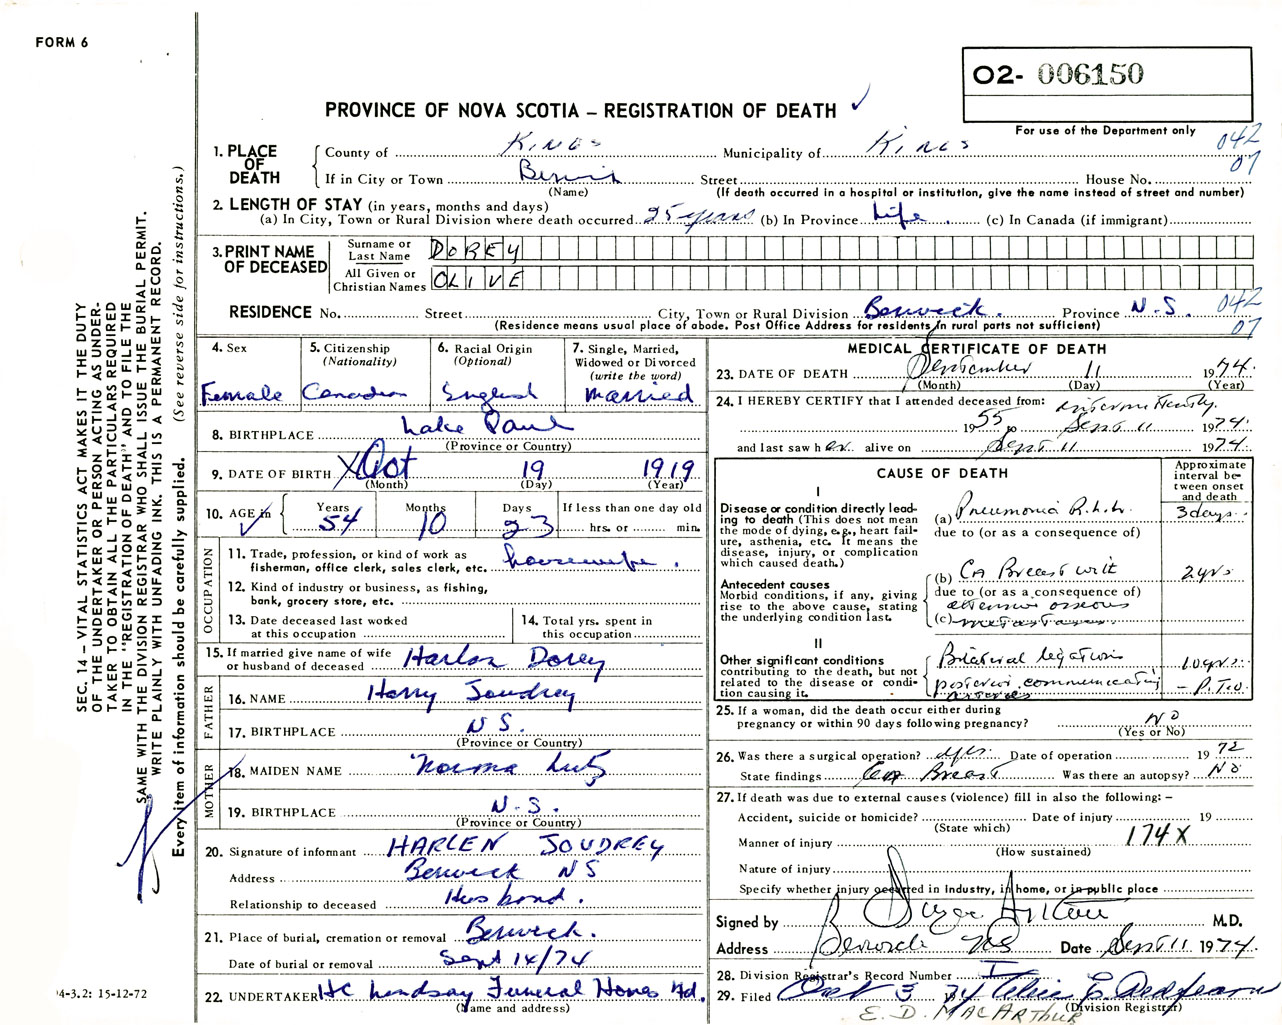 FORM 6
O2- 006150
PROVINCE OF NOVA SCOTIA – REGISTRATION OF DEATH ✓
For use of the Department only
042
07
1. PLACE OF DEATH
County of Kings Municipality of Kings
If in City or Town Berwick Street House No.
(Name) (If death occurred in a hospital or institution, give the name instead of street and number)
2. LENGTH OF STAY (in years, months and days)
(a) In City, Town or Rural Division where death occurred 25 years (b) In Province Life (c) In Canada (if immigrant)
3. PRINT NAME OF DECEASED
Surname or Last Name DOREY
All Given or Christian Names OLIVE
RESIDENCE No. Street City, Town or Rural Division Berwick. Province N.S. 042
(Residence means usual place of abode. Post Office Address for residents in rural parts not sufficient) 07
4. Sex
Female
5. Citizenship
(Nationality)
Canadian
6. Racial Origin
(Optional)
English
7. Single, Married,
Widowed or Divorced
(write the word)
Married
8. BIRTHPLACE Lake Paul
(Province or Country)
9. DATE OF BIRTH Oct 19 1919
(Month) (Day) (Year)
10. AGE in Years Months Days If less than one day old
54 10 23 hrs. or min.
OCCUPATION
11. Trade, profession, or kind of work as
fisherman, office clerk, sales clerk, etc. housewife.
12. Kind of industry or business, as fishing,
bank, grocery store, etc.
13. Date deceased last worked
at this occupation
14. Total yrs. spent in
this occupation
15. If married give name of wife
or husband of deceased Harlon Dorey
FATHER
16. NAME Harry Joudrey
17. BIRTHPLACE N S.
(Province or Country)
MOTHER
18. MAIDEN NAME Norma Lutz
19. BIRTHPLACE N.S.
(Province or Country)
20. Signature of informant HARLEN JOUDREY
Address Berwick NS
Relationship to deceased Husband.
21. Place of burial, cremation or removal Berwick.
Date of burial or removal Sept 14/74
22. UNDERTAKER HC Lindsay Funeral Homes Ltd.
(Name and address)
MEDICAL CERTIFICATE OF DEATH
23. DATE OF DEATH September 11 1974
(Month) (Day) (Year)
24. I HEREBY CERTIFY that I attended deceased from: intermittently.
1955 Sept 11 1974
and last saw her alive on Sept 11 1974
CAUSE OF DEATH
Approximate
interval be-
tween onset
and death
I
Disease or condition directly lead-
ing to death (This does not mean
the mode of dying, e.g., heart fail-
ure, asthenia, etc. It means the
disease, injury, or complication
which caused death.)
(a) Pneumonia R.L.L. 3 days
due to (or as a consequence of)
Antecedent causes
Morbid conditions, if any, giving
rise to the above cause, stating
the underlying condition last.
(b) CA Breast with 2 yrs
due to (or as a consequence of)
extensive osseous
(c) metastases
II
Other significant conditions
contributing to the death, but not
related to the disease or condi-
tion causing it.
Bilateral ligations 10 yrs.
posterior communicating – P.T.O.
arteries
25. If a woman, did the death occur either during
pregnancy or within 90 days following pregnancy? No
(Yes or No)
26. Was there a surgical operation? yes. Date of operation 1972
State findings Ca Breast Was there an autopsy? No
27. If death was due to external causes (violence) fill in also the following: –
Accident, suicide or homicide? Date of injury 19
(State which)
Manner of injury 174X
(How sustained)
Nature of injury
Specify whether injury occurred in industry, in home, or in public place
Signed by M.D.
Address Berwick NS Date Sept 11 1974
28. Division Registrar's Record Number
29. Filed Oct 3 1974
(Division Registrar)
E. D. MACARTHUR
SEC. 14 – VITAL STATISTICS ACT MAKES IT THE DUTY
OF THE UNDERTAKER OR PERSON ACTING AS UNDER-
TAKER TO OBTAIN ALL THE PARTICULARS REQUIRED
IN THE "REGISTRATION OF DEATH" AND TO FILE THE
SAME WITH THE DIVISION REGISTRAR WHO SHALL ISSUE THE BURIAL PERMIT.
WRITE PLAINLY WITH UNFADING INK. THIS IS A PERMANENT RECORD.
Every item of information should be carefully supplied. (See reverse side for instructions.)
4-3.2: 15-12-72